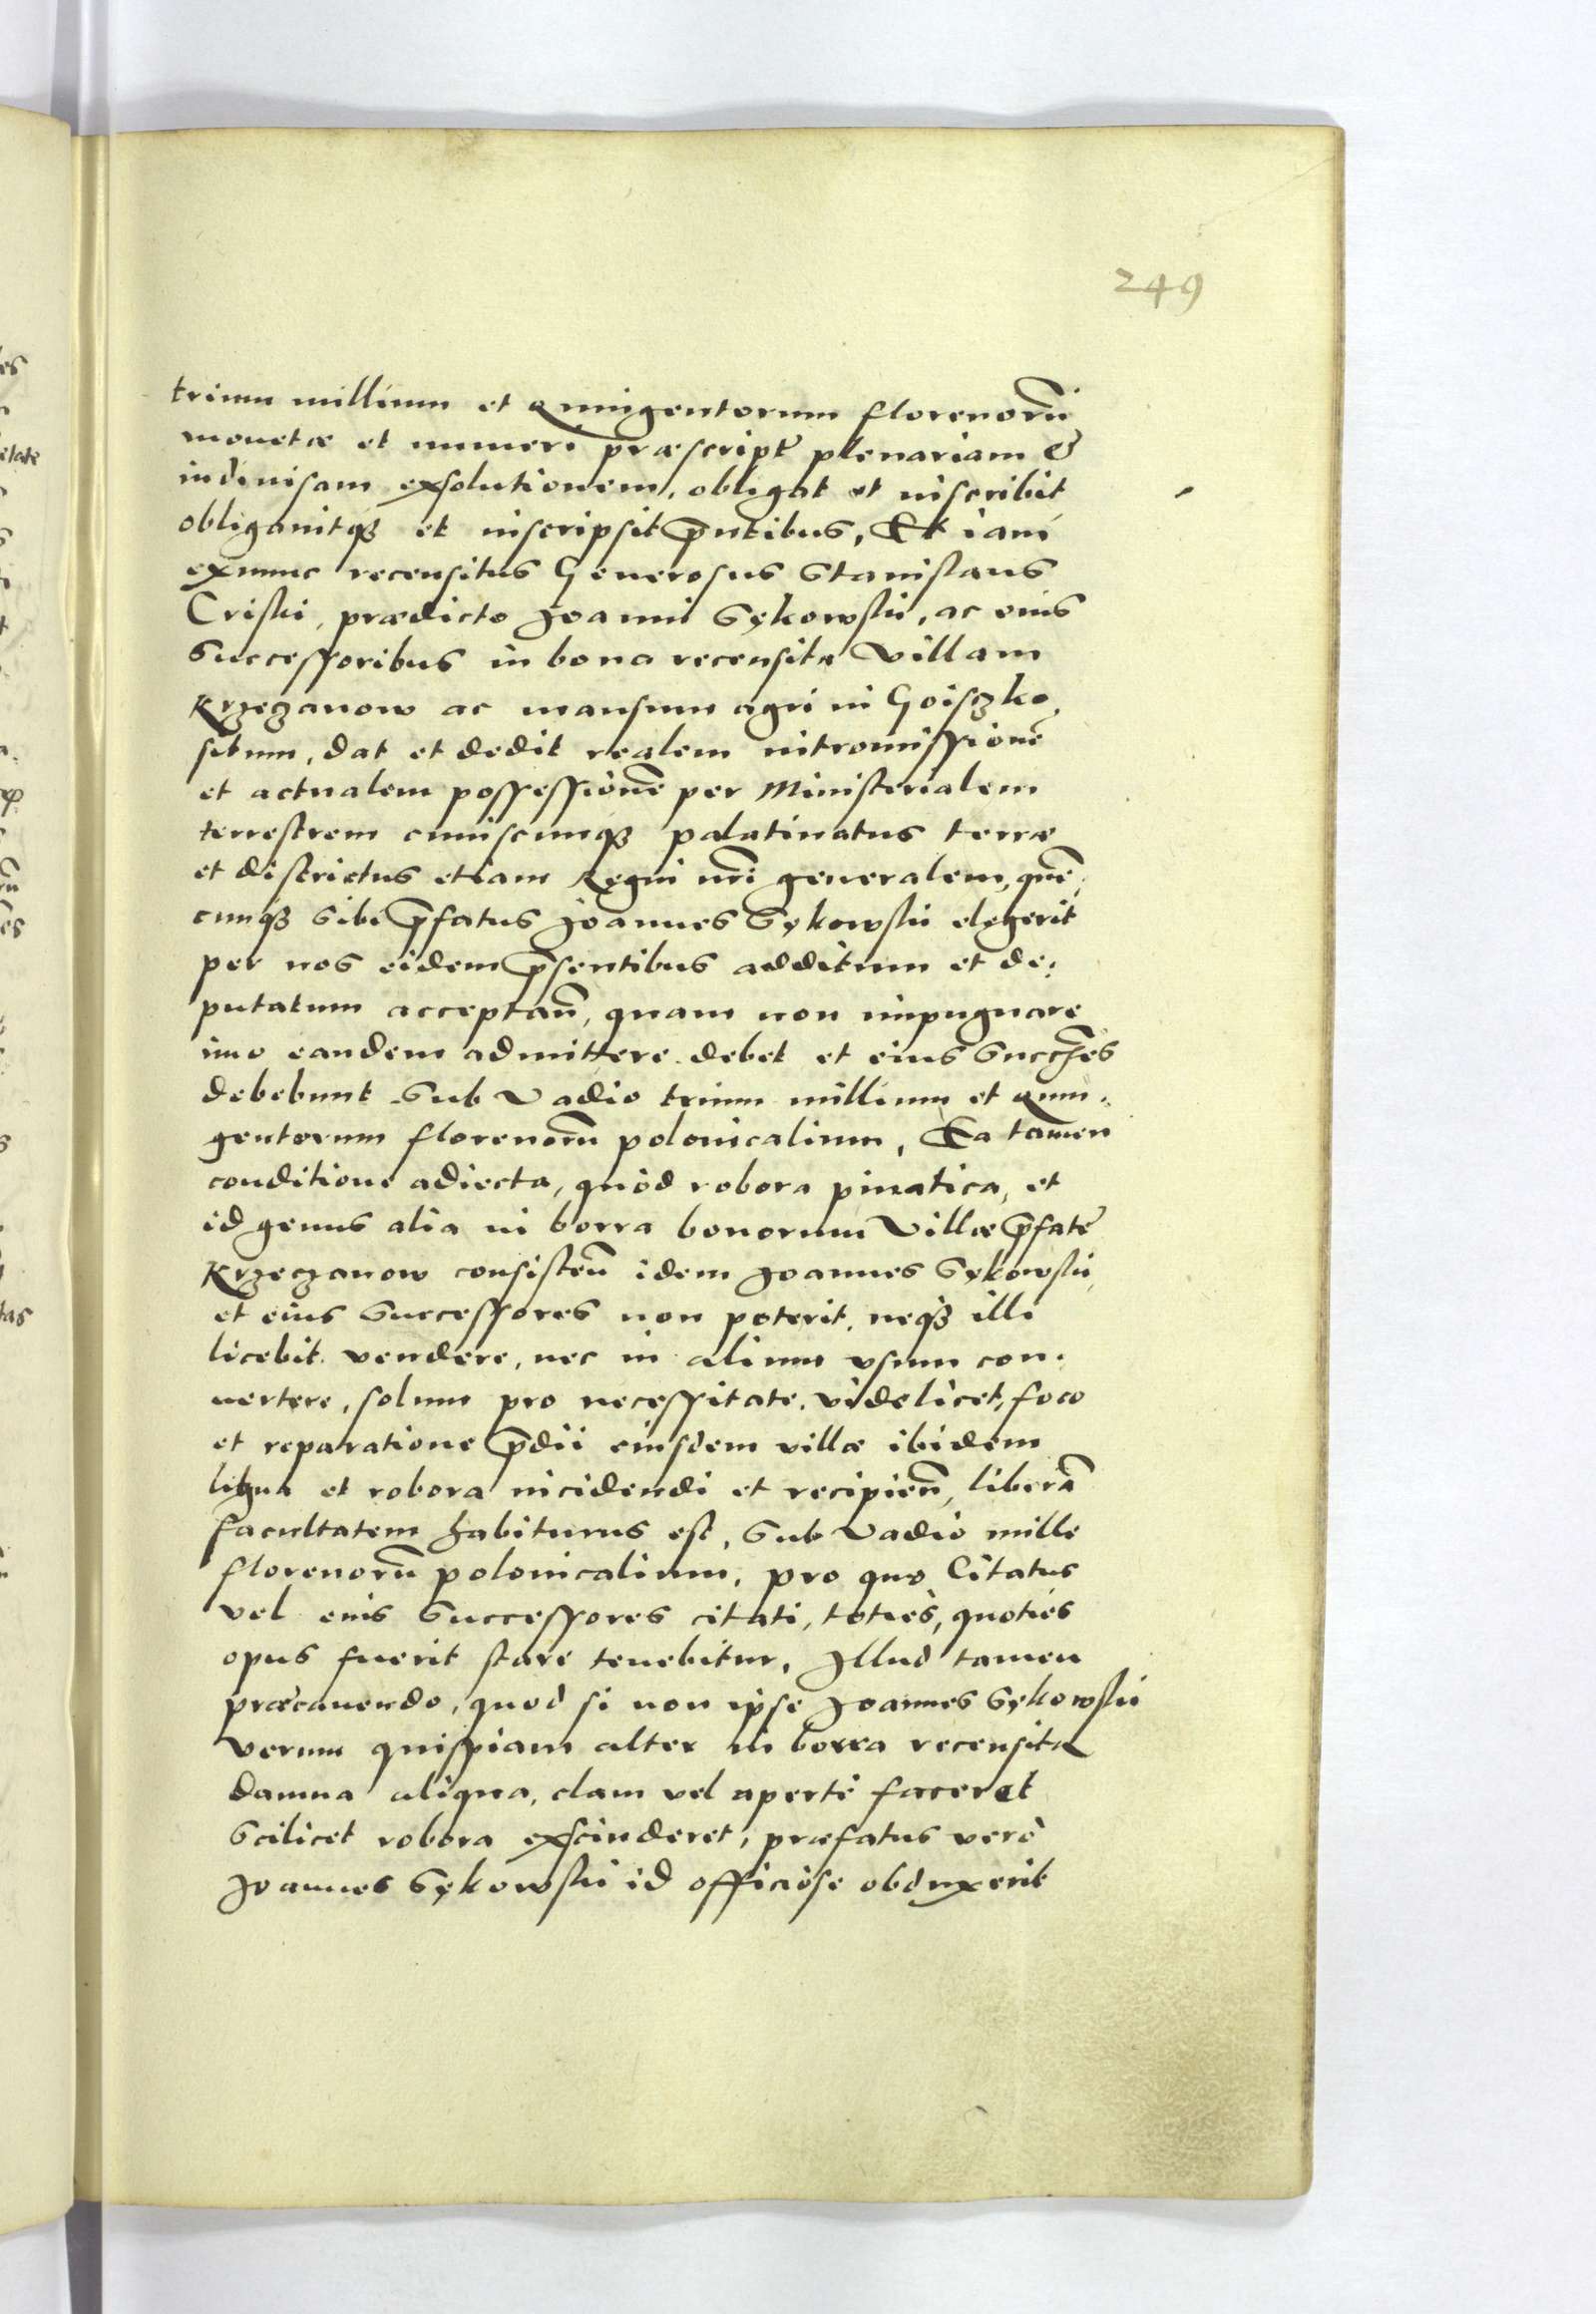 249
trium millium et Quingentorum florenorũ
monetæ et numeri præscript plenariam &
indiuisam exsolutionem, obligat et inscribit
obligauitqȝ et inscripsit p̃ntibus, Et iam
exnunc recensitus Generosus Stanislaus
Criski, prædicto Joanni Sękowski, ac eius
Successoribus in bona recensita Villam
Krzeczanow ac mansum agri in Goiszko
situm, dat et dedit realem intromissionẽ
et actualem possessionẽ per Ministerialem
terrestrem cuiuscunqȝ palatinatus terræ
et districtus etiam Regni nr̃i generalem, quẽ,
cunqȝ sibi p̃fatus Joannes Sękowski elegerit
per nos eidem p̃sentibus additum et de:
putatum acceptañ, quam non impugnare
imo eandem admittere debet et eius Succ̃es
debebunt Sub Vadio trium millium et quin.
gentorum florenorũ polonicalium, Ea tamen
conditione adiecta, quòd robora pinatica, et
id genus alia in borra bonorum Villæ p̃fatẽ
Krzeczanow consisteñ idem Joannes Sękowski
et eius Successores non poterit, neqȝ illi
licebit vendere, nec in alium vsum con.
uertere, solum pro necessitate, videlicet, foco
et reparatione p̃dii eiusdem villæ ibidem
ligna et robora incidendi et recipieñ, liberã
facultatem habiturus est, Sub Vadio mille
florenorũ polonicalium, pro quo Citatus
vel eius Successores citati, toties, quoties
opus fuerit stare tenebitur, Illud tamen
præcauendo, quod si non ipse Joannes Sękowski
verum quispiam alter in borra recensita
damna aliqua, clam vel apertè faceret
Scilicet robora exscinderet, præfatus verò
Joannes Sękowski id officiose obduxerit